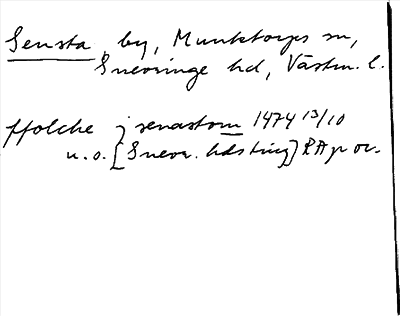 Sensta by, Munktorps sn,
Snevringe hd, Västm. l.
ffolche j senastom 1474 13/10
u.o. [Snevr. hdsting] RAp or.